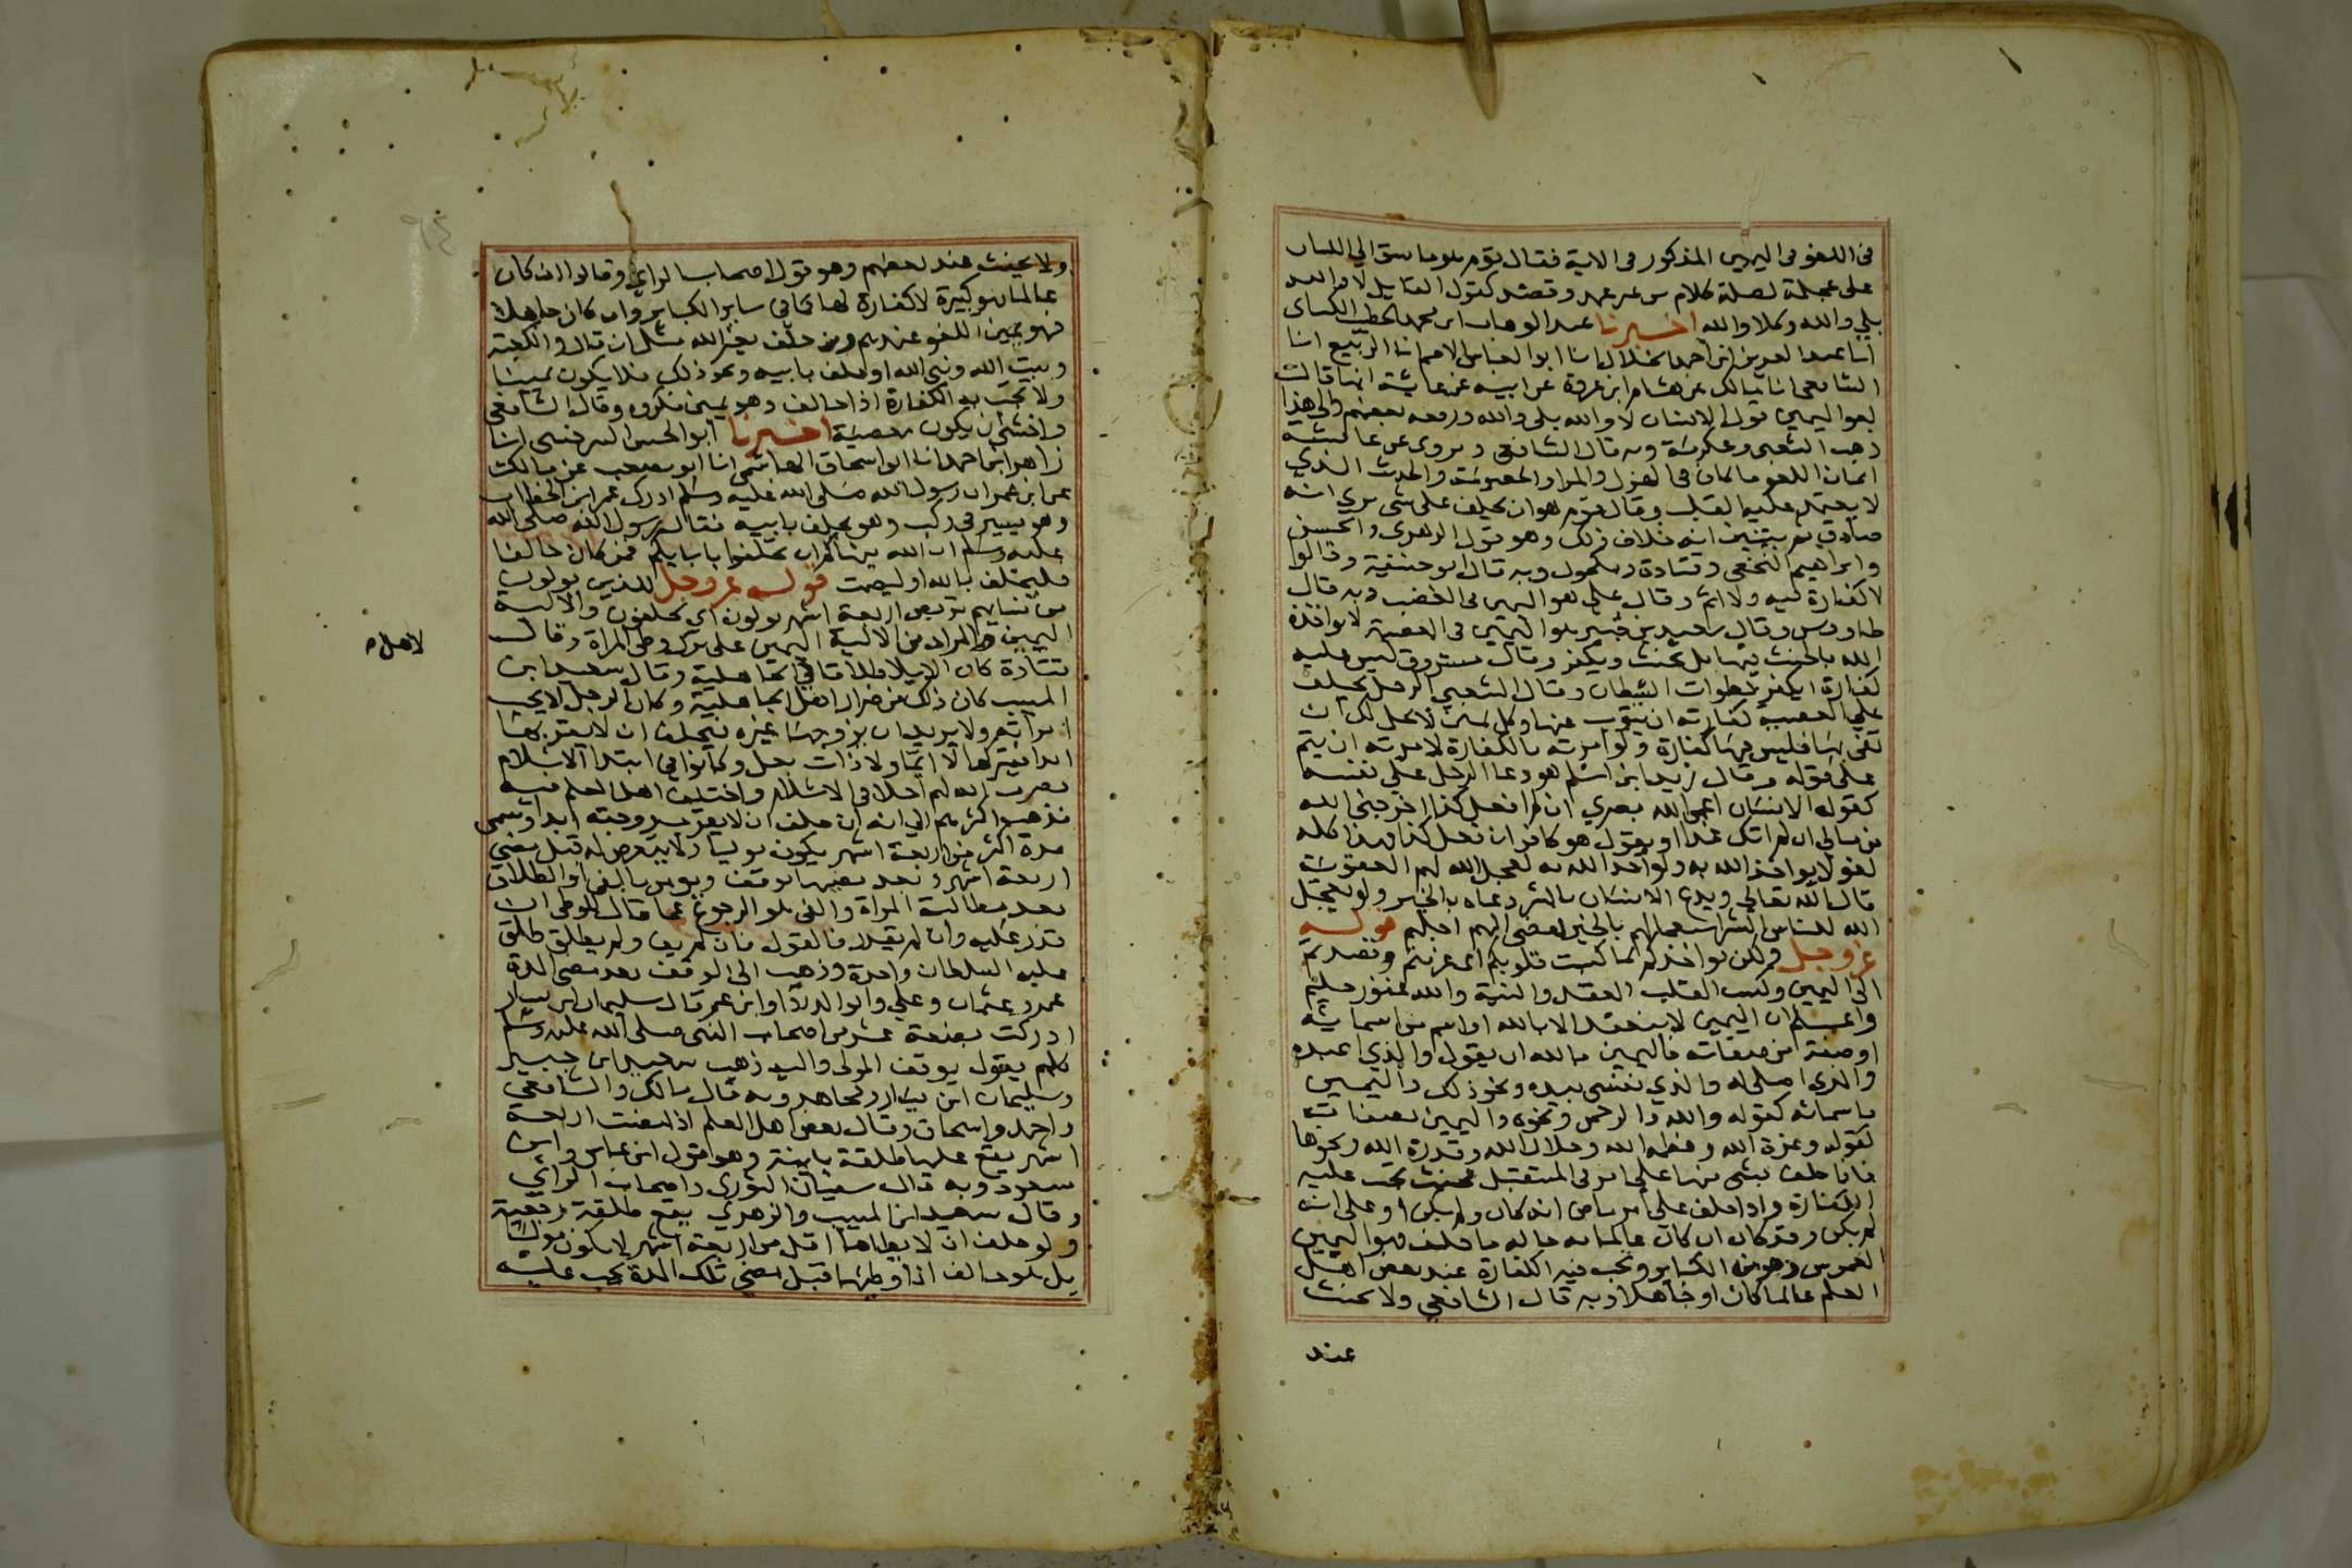 في اللغو في اليمين المذكور في الاية فقال قوم هو ما سبق الي اللسان
على عجلة لصلة كلام من غير عمد وقصد كقول القايل لا والله
بلي والله وكلا والله اخبرنا عبد الوهاب ابن محمد الخطيب الكسائي
انا عبد العزيز ابن احمد الخلال انا ابوا العباس الاصم انا الربيع انا
الشافعي انا مالك عن هشام ابن عروة عن ابيه عن عايشة انها قالت
لغو اليمين قول الانسان لا والله بلى والله ورفعه بعضهم والي هذا
ذهب الشعبي وعكرمة وبه قال الشافعي ويروى عن عايشة
ايمان اللغو ما كان في الهزل والمرا والخصومة والحديث الذي
لا يعقد عليه القلب وقال قوم هو ان يحلف على شي يري انه
صادق ثم يتبين انه خلاف ذلك وهو قول الزهري والحسن
وابراهيم النخعي وقتادة ومكحول وبه قال ابو حنيفة وقالوا
لا كفارة فيه ولا اثم وقال علي هو اليمين في الغضب وبه قال
طاووس وقال سعيد بن جبير هو اليمين في المعصية لا يواخذه
الله بالحنث فيها بل يحنث ويكفر وقال مسروق ليس عليه
كفارة ايكفر خطوات الشيطان وقال الشعبي الرجل يحلف
علي المعصية كفارته ان يتوب عنها وكل يمين لا يحل لك ان
تفي بها فليس فيها كفارة ولو امرته بالكفارة لامرته ان يتم
على قوله وقال زيد ابن اسلم هو دعا الرجل على نفسه
كقوله الانسان اعمي الله بصري ان لم افعل كذا اخرجني الله
من مالي ان لم اتك غدا او يقول هو كافر ان فعل كذا فهذا كله
لغو لا يواخذ الله به ولو اخذ الله به لعجل الله لهم العقوبة
قال الله تعالي ويدع الانسان بالشر دعاه بالخير ولو يعجل
الله للناس الشر استعجالهم بالخير لقضي اليهم اجلهم قوله
عز وجل ولكن يواخذكم بما كسبت قلوبكم اي عزمتم وقصدتم
الي اليمين وكسب القلب العقد والنية والله غفور حليم
واعلم ان اليمين لا ينعقد الا بالله او اسم من اسمايه
او صفة من صفاته فاليمين بالله ان يقول والذي اعبده
والذي اصلي له والذي نفسي بيده ونحو ذلك واليمين
باسمائه كقوله والله والرحمن ونحوه واليمين بصفاته
كقوله وعزة الله وعظمة الله وجلال الله وقدرة الله ونحوها
فاذا حلف بشي منها علي امر في المستقبل فحنث تجب عليه
الكفارة واذا حلف علي امر ماض انه كان ولم يكن او على انه
لم يكن وقد كان ان كان عالما به حالة ما حلف فهو اليمين
الغموس وهو من الكباير وتجب فيه الكفارة عند بعض اهل
العلم عالما كان او جاهلا وبه قال الشافعي ولا يحنث
عند
ولا يحنث عند بعضهم وهو قول اصحاب الراي وقالوا ان كان
عالما فهو كبيرة لا كفارة لها كما في ساير الكباير وان كان جاهلا
فهو يمين اللغو عندهم ومن حلف بغير الله مثل ان قال والكعبة
وبيت الله ونبي الله او حلف بابيه ونحو ذلك فلا يكون يمينا
ولا تجب به الكفارة اذا حالف وهو يمين مكروه وقال الشافعي
واخشي ان يكون معصية اخبرنا ابو الحسن السرخسي انا
زاهر ابن احمد انا ابو اسحاق الهاشمي انا ابو مصعب عن مالك
عن ابن عمر ان رسول الله صلى الله عليه وسلم ادرك عمر ابن الخطاب
وهو يسير في ركب وهو يحلف بابيه فقال رسول الله صلى الله
عليه وسلم ان الله ينهاكم ان تحلفوا بابايكم فمن كان حالفا
فليحلف بالله او ليصمت قوله عز وجل للذين يولون
من نسايهم تربص اربعة اشهر يولون اي يحلفون والالية
اليمين والمراد من الالية اليمين على ترك وطي المراة وقال
قتادة كان الايلا طلاقا في الجاهلية وقال سعيد ابن
لاهل
المسيب كان ذلك من ضرار اهل الجاهلية وكان الرجل لا يحب
امراته ولا يريد ان يتزوجها غيره فيحلف ان لا يقربها
ابدا فيتركها لا ايما ولا ذات بعل وكانوا في ابتدا الاسلام
فضرب الله لهم اجلا في الاسلام واختلف اهل العلم فيه
فذهب اكثرهم الي انه ان حلف ان لا يقرب زوجته ابدا او سمى
مدة اكثر من اربعة اشهر يكون موليا ولا يتعرض له قبل مضي
اربعة اشهر وبعد مضيها يوقف ويومر بالفي او الطلاق
بعد مطالبة المراة والفي هو الرجوع عما قال بالوطي ان
قدر عليه وان لم يقدر فبالقول فان لم يف ولم يطلق طلق
عليه السلطان واحدة وذهب الي الوقف بعد مضي المدة
عمر وعثمان وعلي وابوا الدردا وابن عمر قال سليمان ابن يسار
ادركت بضعة عشر من اصحاب النبي صلى الله عليه وسلم
كلهم يقول يوقف المولي واليه ذهب سعيد ابن جبير
وسليمان ابن يسار ومجاهد وبه قال مالك والشافعي
واحمد واسحاق وقال بعض اهل العلم اذا مضت اربعة
اشهر يقع عليها طلقة باينة وهو قول ابن عباس وابن
مسعود وبه قال سفيان الثوري واصحاب الراي
وقال سعيد ابن المسيب والزهري يقع طلقة رجعية
ولو حلف ان لا يطاها اقل من اربعة اشهر لا يكون موليا
بل هو حالف اذا وطيها قبل مضي تلك المدة يجب عليه